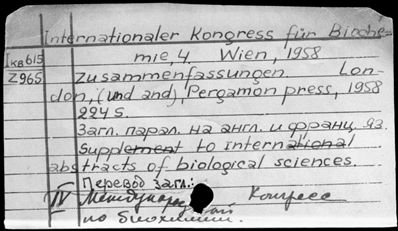 Internationaler Kongress für Bioche-
Iкв615 mie, 4. Wien, 1958
Z965 Zusammenfassungen. Lon-
don, (und and), Pergamon press, 1958
224 S.
Загл. парал. на англ. и франц. яз.
Supplement to international
abstracts of biological sciences.
Перевод загл.:
IV Международный Конгресс
по биохимии.